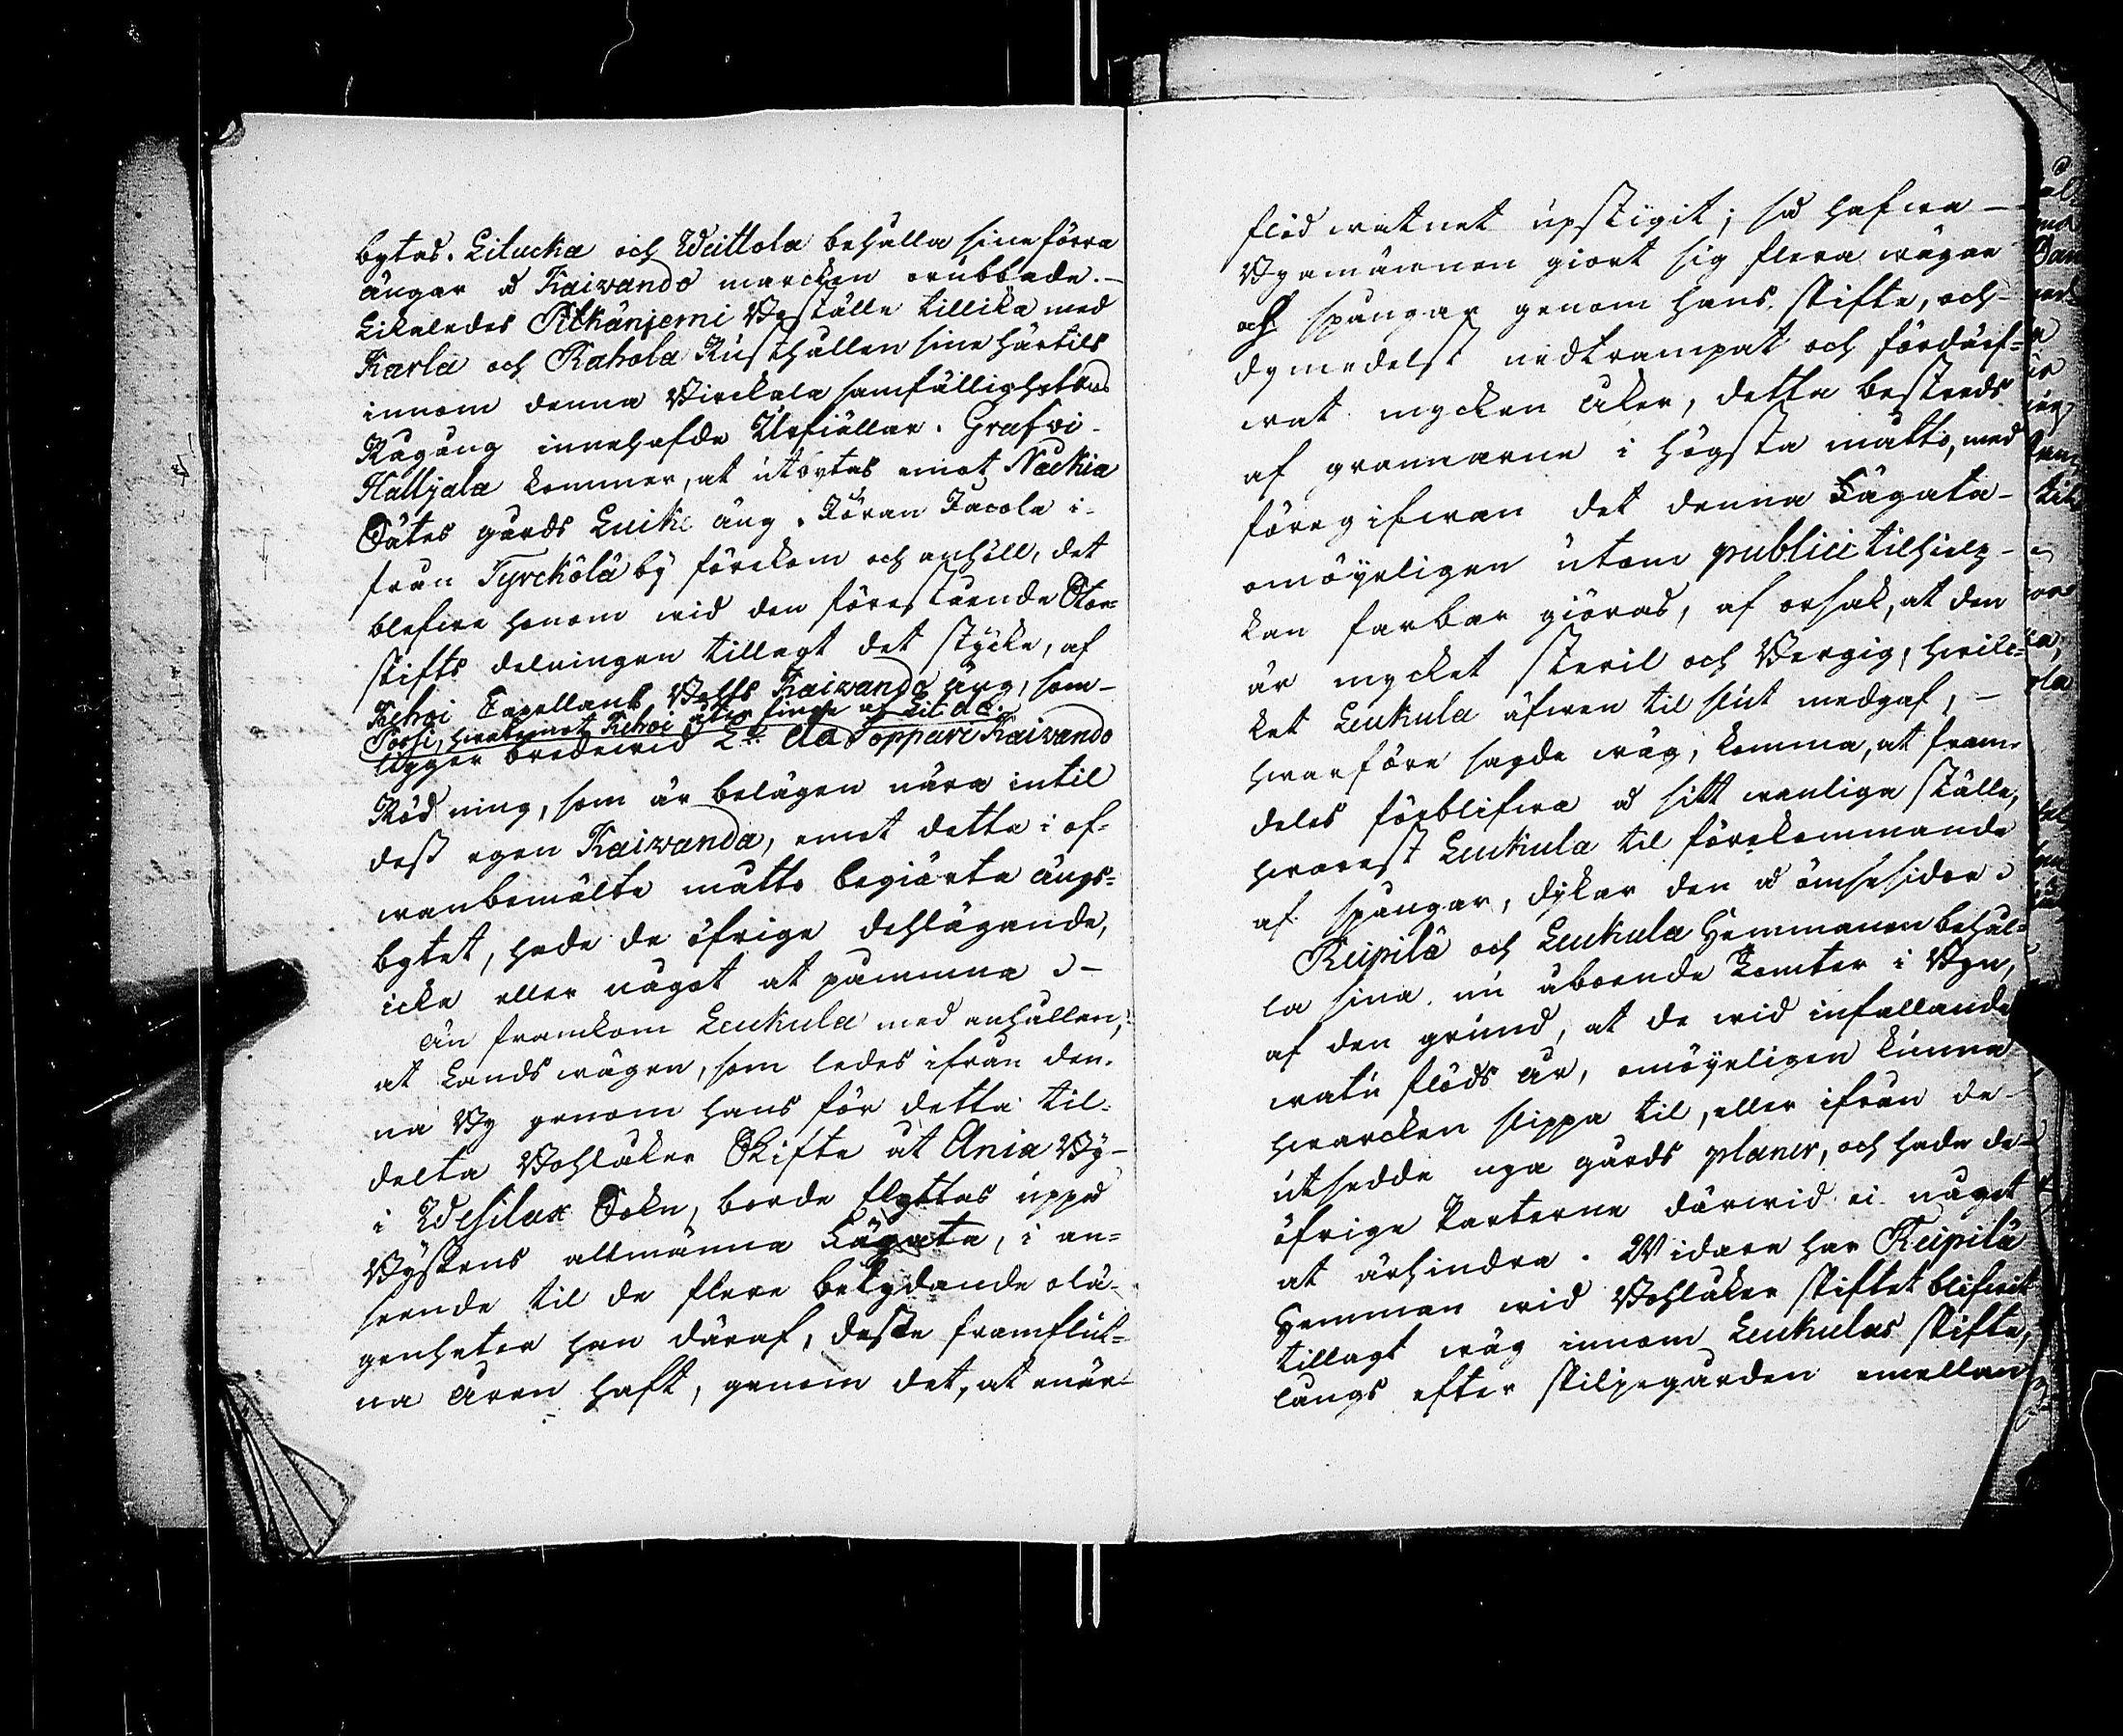 bytas. Litucka och Weittola behålla sine förra
ängar å Kaivando marcken orubbade.-
Likaledes Pitkänjemi Boställe tillika med
Karla och Rahola Rusthållen sine härtils
innom denna Virckala samfällighetens
Rågång innehafde Urfiällar. Grafvi-
Hälljala kommer, at utbytas emot Nackia
Sätes gårds Luike äng. Föran Jacola i-
från Tyrckölä by förekom och anhöll, det
blefwe honom wid den förestående Stor-
skifts delningen tillagt det stycke, af
Kehoi Capellans Bohls Kaivando äng, som-
Torsi, hwaremot Kehoi åter finge af Lit. da.
ligger bredewid Lt. da Soppari Kaivando
Rödning, som är belägen nära intil
dess egen Kaivanda, emot detta i of-
wanbemälte måtto begiärte ängs-
bytet, hade de öfrige dehlägande,
icke eller något at påminna.-
Än framkom Leukula med anhållan,
at Landswägen, som ledes ifrån den-
na By genom hans för detta til-
delta Bohlåker Skifte åt Ania By-
i Wesilax Sokn, borde flyttas uppå
Byskens allmänna Fägata, i an-
seende til de flere betydande olä-
genheter han däraf, desse framflut-
na åren haft, genom det, at enär
flod watnet upstigit; så hafwa-
Byamännen giort sig flera wägar
och spångar genom hans skifte, och
dymedelst nedtrampat och fördärf-
wat mycken åker, detta bestreds
af grannarne i högsta måtto, med
föregifwan det denna Fägata-
omöyeligen utom publici tilhielp-
kan farbar giöras, af orsak, at den
är mycket steril och Bergig, hwil-
ket Leukula äfwen til slut medgaf,-
hwarföre sagde wäg, komma, at fram-
deles förblifwa å sitt wanliga ställe,
hwarest Leukula til förekommande
af spångar, dykar den å ömse sidor.
Reipilä och Leukula Hemmanen behål-
la sina nu åboende Tomter i Byn,
af den grund, at de wid infallande
watu flöds år, omöyeligen kunna
hwarcken slippa til, eller ifrån de-
utsedde nya gårds planer, och hade de-
öfrige Parterne därwid ei något
at ärhindra. Widare har Reipilä
Hemman wid Bohlåker skiftet blifwit
tillagt wäg innom Leukulas skifte,
längs efter skiljegården emellan